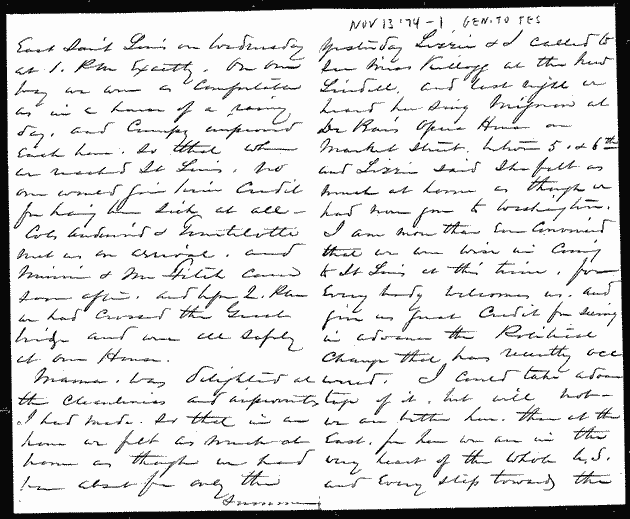 NOV 13 '74 - 1 GEN. TO TES
East Saint Louis on Wednesday
at 1. P.M. Exactly. On our
way we were as Comfortable
as in a house of a rainy
day, and Cumpy improved
Each hour. So that when
we reached St Louis, No
one would give him Credit
for having been Sick at all -
Cols Audenried &
met us on arrival, and
Minnie & Mr Fitch Came
soon after, and before 2. P.M.
we had crossed the Great
bridge and were all safely
at our House.
Mama. was delighted at
the Cleanliness and improvements
I had made. So that in an
hour we felt as much at
home as though we had
been absent for only the
Summer
Yesterday Lizzie & I called to
See Miss Kellogg at the New
Lindell, and last night we
heard her sing Mignon at
De Bar's Opera House on
Market Street. between 5. & 6th
and Lizzie said She felt as
much at home as though we
had never gone to Washington.
I am more than Ever Convinced
that we are wise in Coming
to St Louis at this time, for
Every body welcomes us, and
give us great Credit for seeing
in advance the Political
Change that has recently occ
urred. I Could take advan
tage of it, but will not -
we are better here. than at the
East. for here we are in the
very heart of the whole U.S.
and Every step towards the